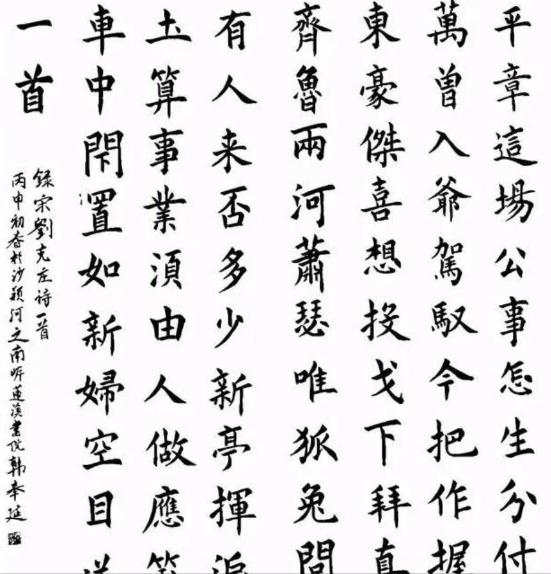 平章這場公事怎生分付
萬曾入爺駕馭今把作握
東豪傑喜想投戈下拜真
齊魯兩河蕭瑟唯狐兔問
有人来否多少新亭揮
土算事業須由人做應
車中閇置如新婦空目
一首
錄宗劉克庄诗一首
丙申初春於沙颍河之南听蓮溪書院韩奉廷